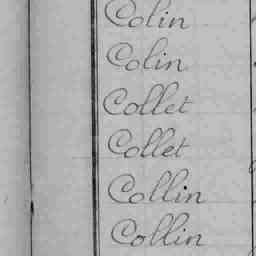 Colin
Colin
Collet
Collet
Collin
Collin